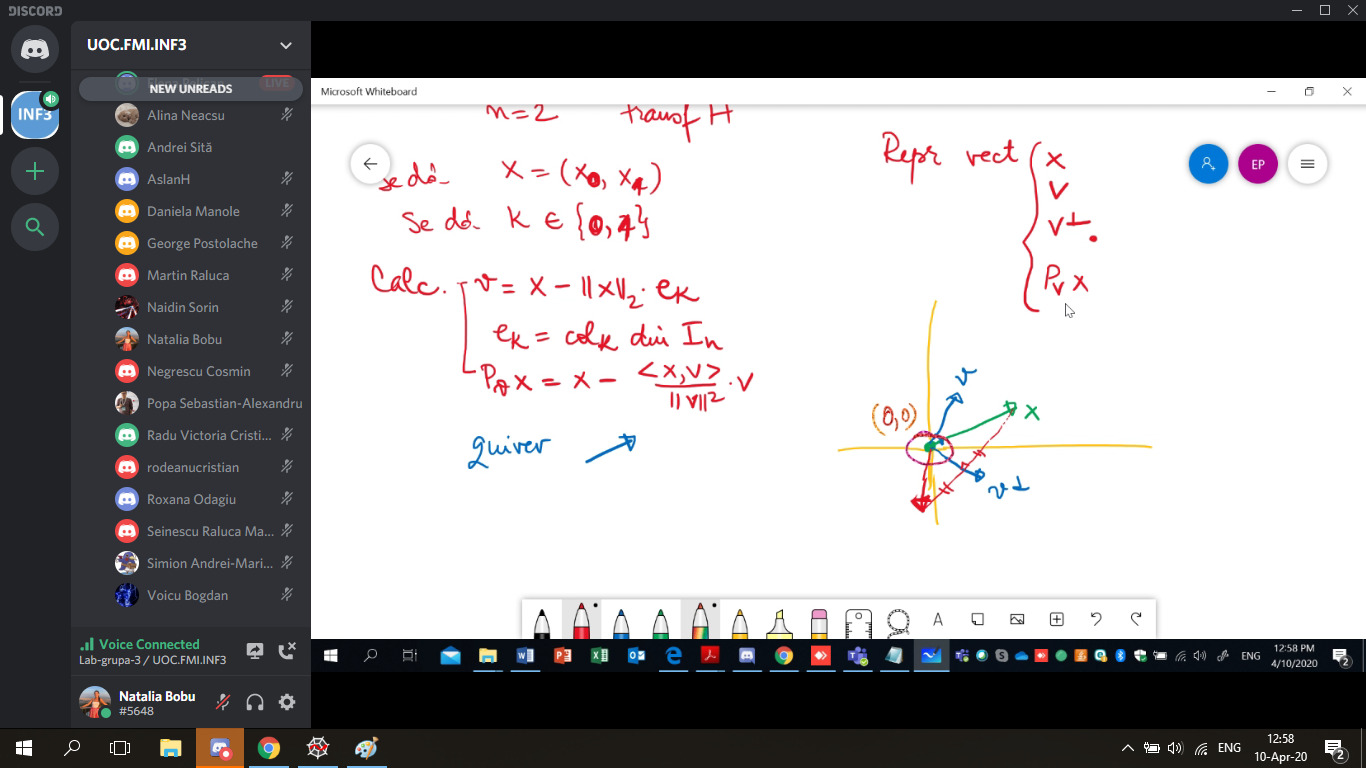 DISCORD
UOC.FMI.INF3
LIVE
NEW UNREADS
INF3
Alina Neacsu
Andrei Sită
AslanH
Daniela Manole
George Postolache
Martin Raluca
Naidin Sorin
Natalia Bobu
Negrescu Cosmin
Popa Sebastian-Alexandru
Radu Victoria Cristi...
rodeanucristian
Roxana Odagiu
Seinescu Raluca Ma...
Simion Andrei-Mari...
Voicu Bogdan
Voice Connected
Lab-grupa-3 / UOC.FMI.INF3
Natalia Bobu
#5648
Microsoft Whiteboard
EP
n=2 transf H
se dă x = (x0, x1)
se dă k ∈ {0,1}
Calc. v = x - ||x||2 · ek
ek = colk din In
Pv x = x - <x,v> / ||v||² · v
quiver
Repr vect { x
v
v⊥
Pv x
v
(0,0)
x
v⊥
A
ENG
12:58 PM
4/10/2020
2
ENG
12:58
10-Apr-20
2